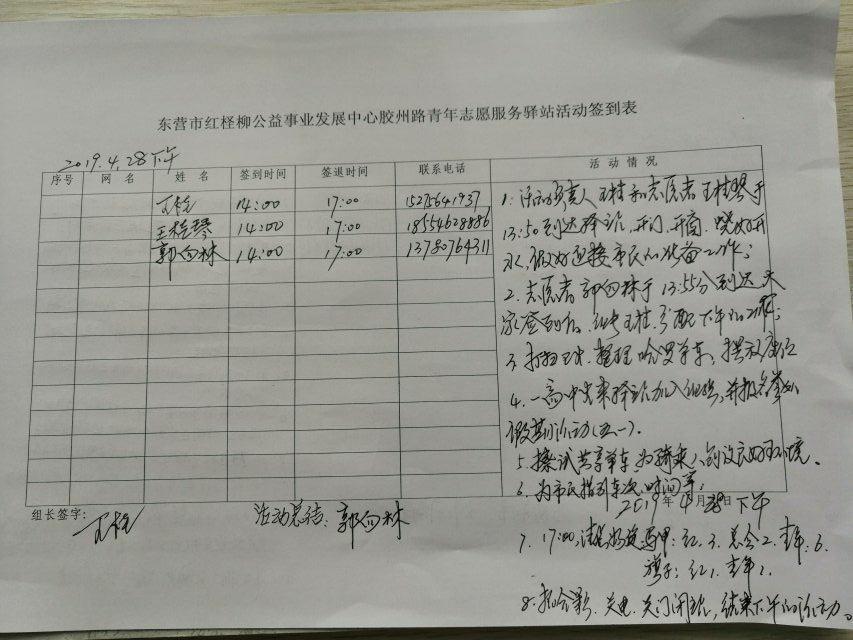 东营市红柽柳公益事业发展中心胶州路青年志愿服务驿站活动签到表
2019.4.28下午
序号 网名 姓名 签到时间 签退时间 联系电话 活动情况
王桂 14:00 17:00 15275641937
王桂琴 14:00 17:00 18554628886
郭向林 14:00 17:00 13780764311
1. 活动负责人王桂和志愿者王桂琴于
13:50到达驿站,开门、开窗、烧好开
水,做好迎接市民的准备工作;
2. 志愿者郭向林于13:55分到达,大
家签到后,组长王桂分配下午的工作;
3. 打扫卫生、整理哈啰单车、摆放座位
4. 一高中生来驿站加入组织,并报名参加
假期活动(五一)。
5. 擦试共享单车,为骑乘人创设良好的环境。
6. 为市民指引车次、时间等;
2019年4月28日下午
组长签字: 王桂 活动总结:郭向林
7. 17:00,清点马甲:红.3.总会2.青年:6.
旗子:红1.青年1.
8. 拍合影、关电、关门闭站,结束下午的活动。